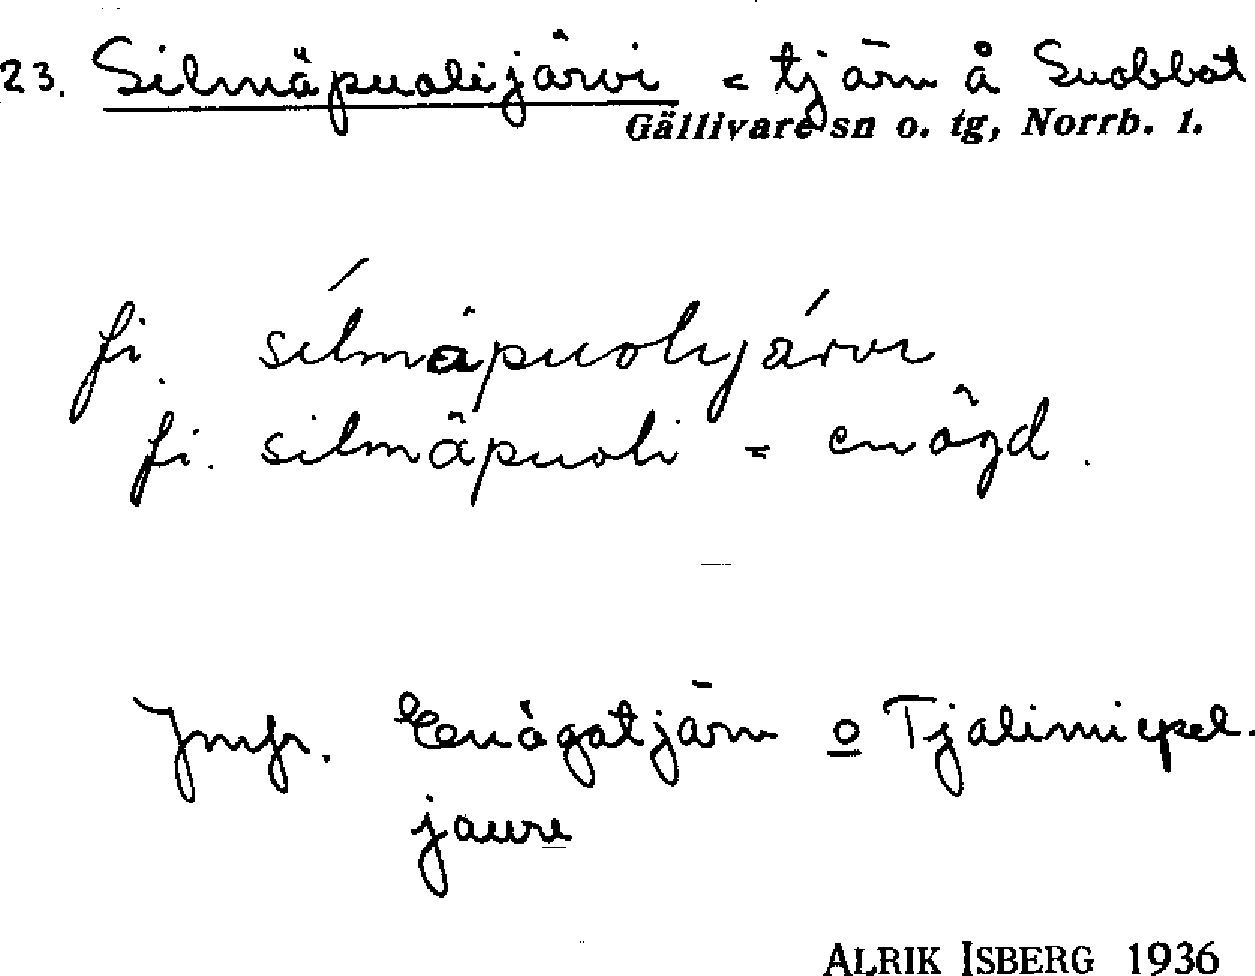 23. Silmäpuolijärvi = tjärn å Suobbat
Gällivare sn o. tg, Norrb. l.
fi. silmäpuolijärvi
fi. silmäpuoli = enögd.
Jmfr. Enögatjärn o Tjalimiepel-
jaure
ALRIK ISBERG 1936